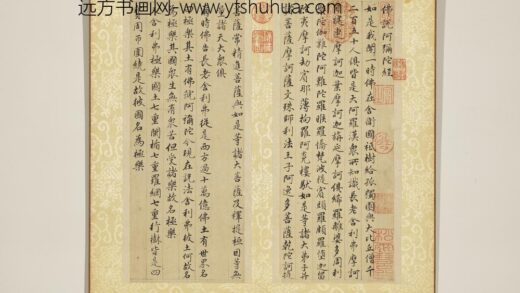 远方书画网：www.yfshuhua.com
佛說阿彌陀經
如是我聞一時佛在舍衛國祇樹給孤獨園與大比丘僧千
二百五十人俱皆是大阿羅漢衆所知識長老舍利弗摩訶
目犍連摩訶迦葉摩訶迦旃延摩訶俱絺羅離婆多周利
槃陀伽難陀阿難陀羅睺羅憍梵波提賓頭盧頗羅墮迦留
陀夷摩訶劫賓那薄拘羅阿㝹樓馱如是等諸大弟子并
諸菩薩摩訶薩文殊師利法王子阿逸多菩薩乾陀訶提
菩薩常精進菩薩與如是等諸大菩薩及釋提桓因等無
量諸天大衆俱
爾時佛告長老舍利弗從是西方過十萬億佛土有世界名
曰極樂其土有佛號阿彌陀今現在說法舍利弗彼土何故名
為極樂其國衆生無有衆苦但受諸樂故名極樂
又舍利弗極樂國土七重闌楯七重羅網七重行樹皆是四
寶周帀圍繞是故彼國名為極樂